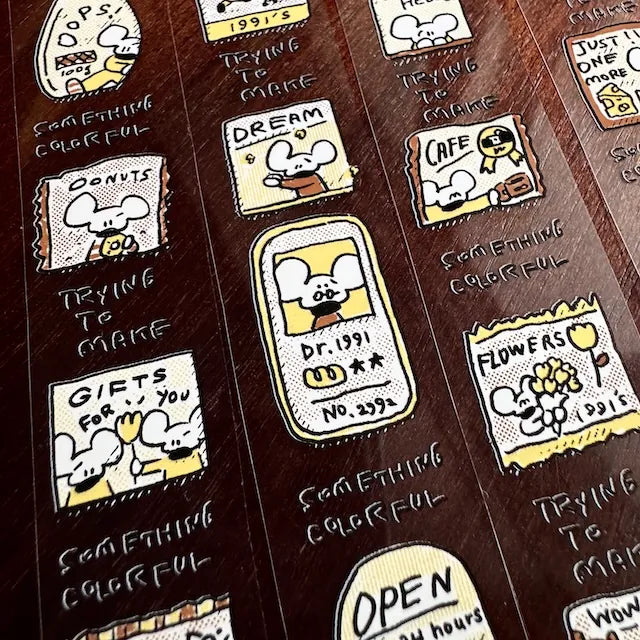 OPS!
100g
SOMETHING
COLORFUL
DONUTS
TRYING
TO
MAKE
GIFTS
FOR YOU
SOMETHING
COLORFUL
1991'S
TRYING
TO
MAKE
DREAM
Dr. 1991
NO. 2992
SOMETHING
COLORFUL
OPEN
hours
TRYING
TO
MAKE
CAFE
SOMETHING
COLORFUL
FLOWERS
1991'S
TRYING
TO
MAKE
JUST
ONE
MORE